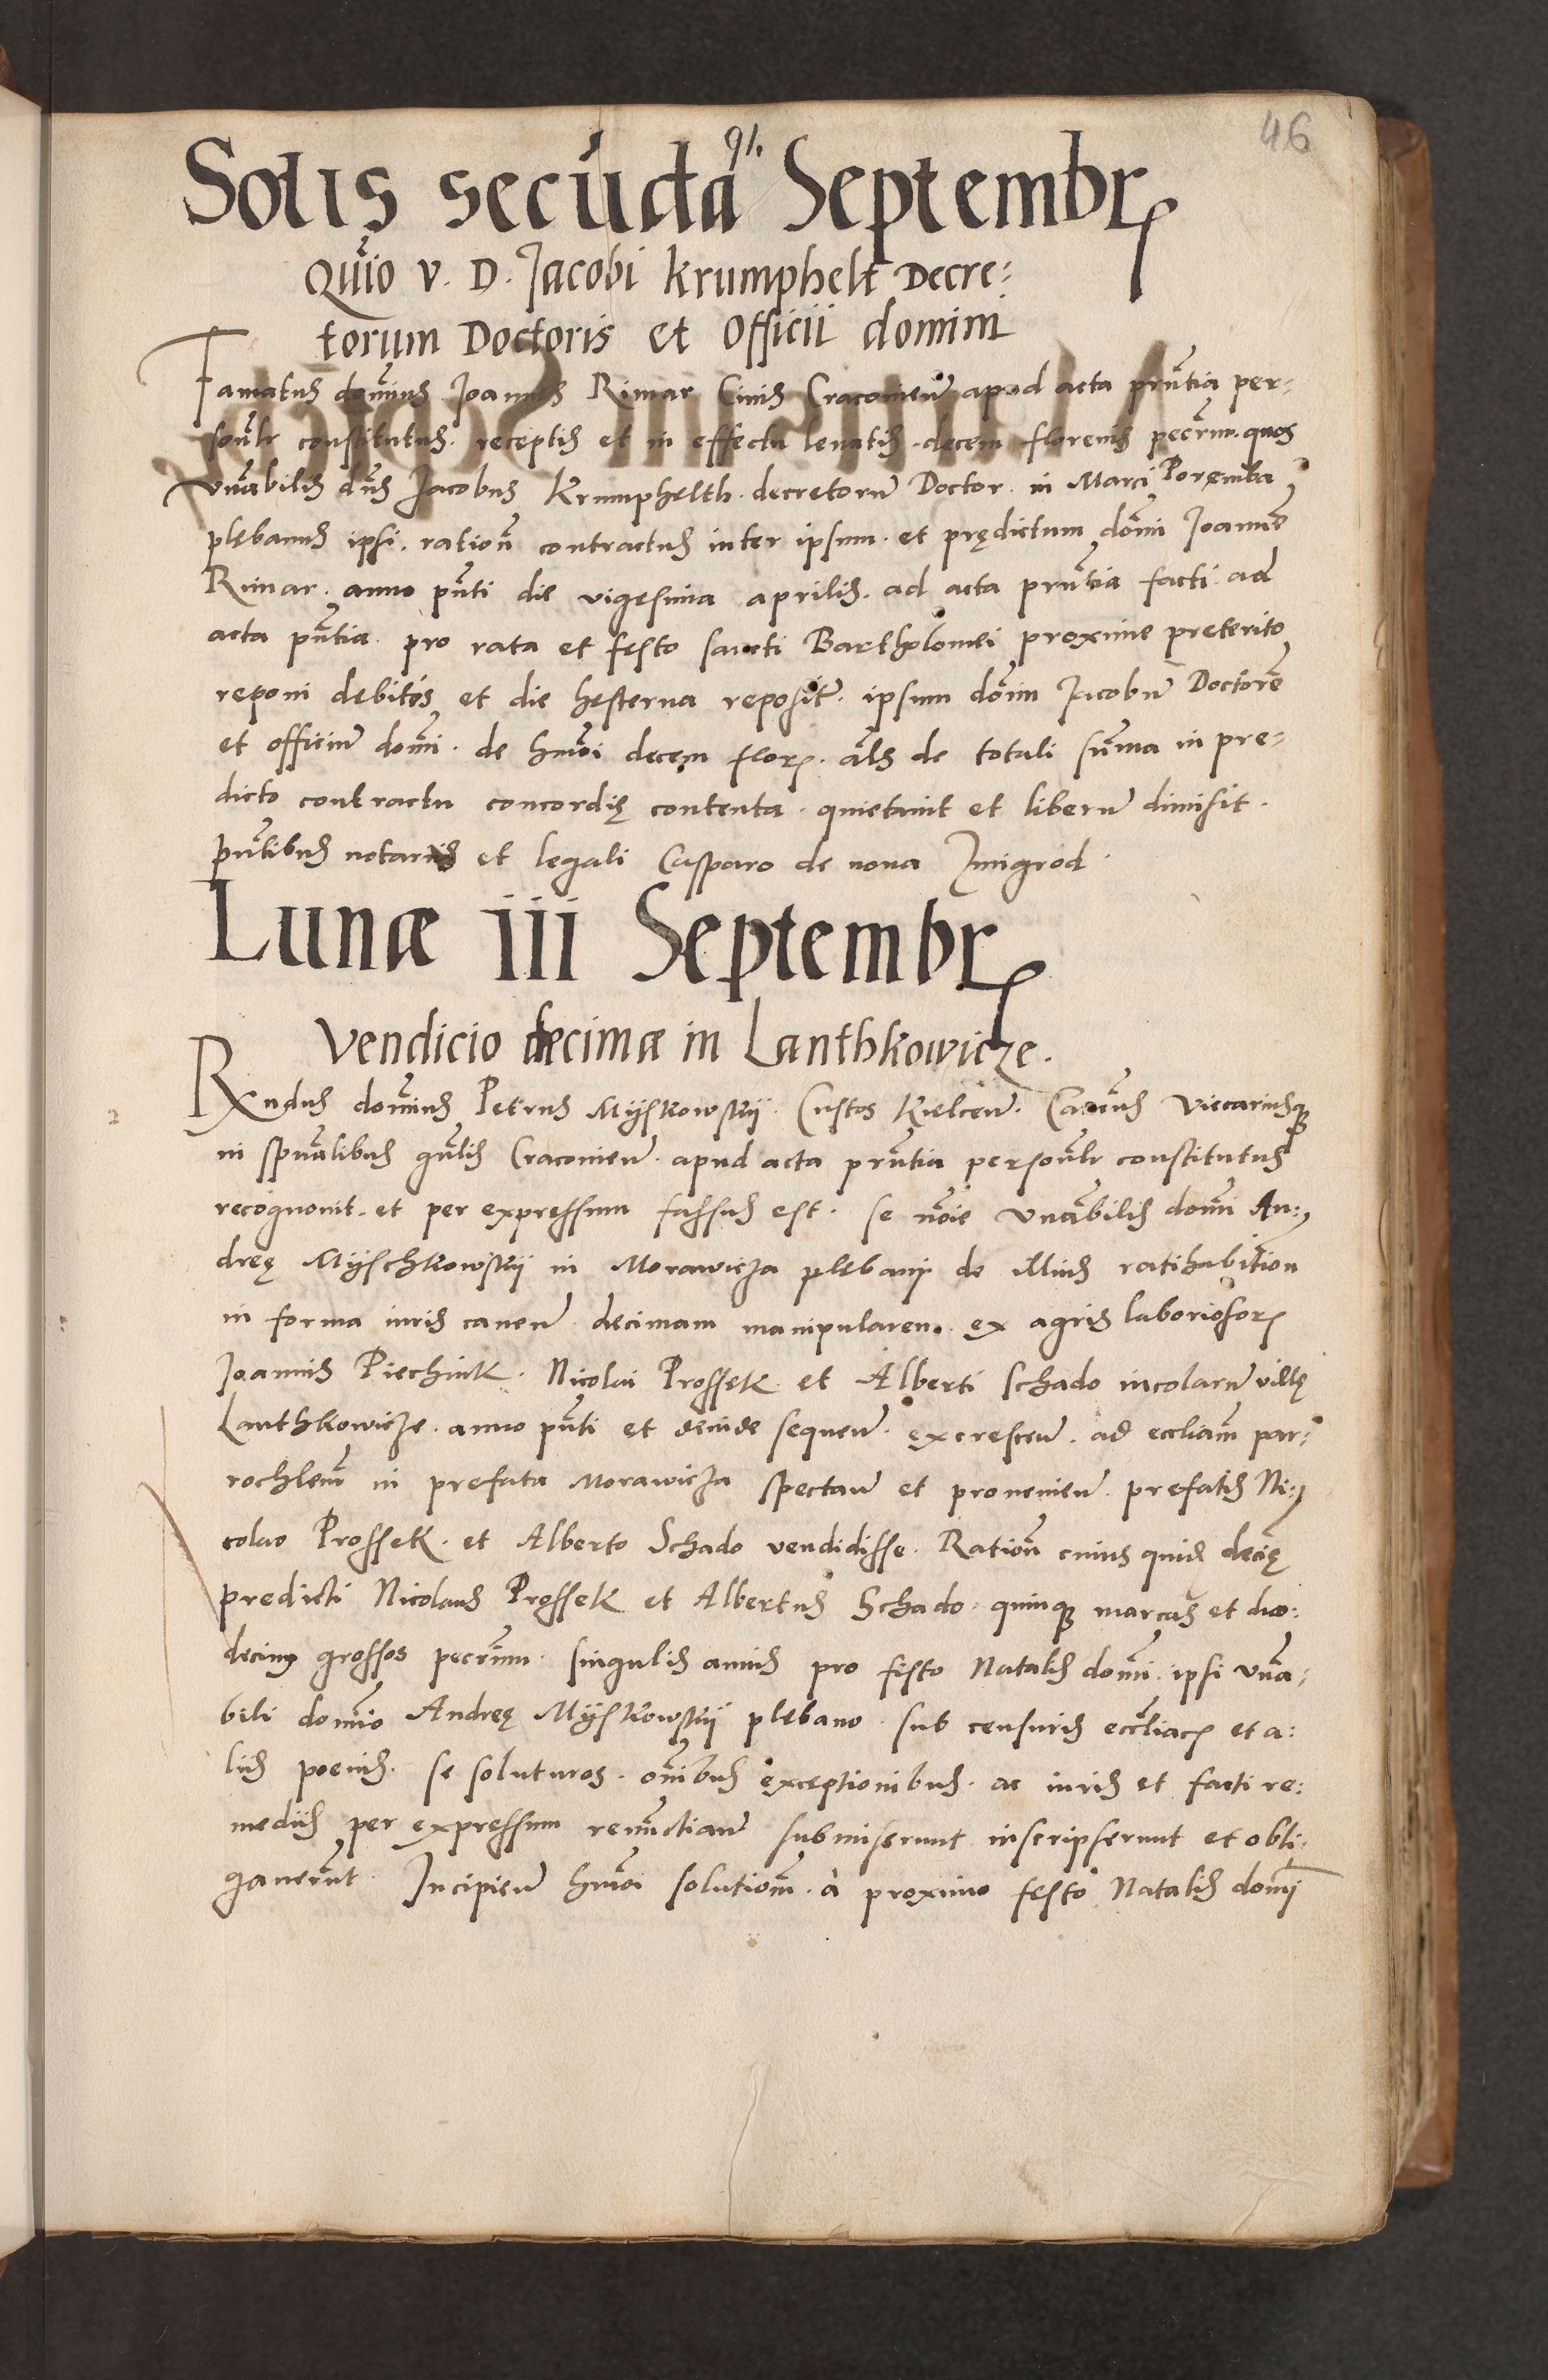 46
Solis secūda Septembr
Quio V. D. Jacobi Krumphelt Decre:
torum Doctoris et Officii domini
Famatus dominus Joannes Rimar Civis Cracovien apud acta pñtia per-
sonlr constitutus. receptis et in effectu levatis. decem florenis pecrum. quos
vñabilis dñs Jacobus Krumphelth. decretoru Doctor. in Marci Poręmba
plębanus ipsi. rationẽ contractus inter ipsum. et prędictum domi Joannẽ
Rimar. anno pñti die vigesima aprilis. ad acta prñtia facti. ad
acta pñtia. pro rata et festo sancti Bartholomei proxime preterito
reponi debitos et die hesterna reposit. ipsum domin Jacobu Doctorẽ
et officiu domi. de hmõi decem flor. als de totali suma in pre-
dicto contractu concordię contenta. quietavit et liberu dimisit.
pñtibus notariis et legali Casparo de nova Zmigrod.
Lunæ iii Septembr
Vendicio decimæ in Lanthkowicze.
Rxndus dominus Petrus Myskowskij. Custos Kielcen. Canonus Viccariusq
in spũalibus gñlis Cracovien. apud acta prñtia personlr constitutus
recognovit. et per expressum fassus est. se noie vñabilis domi An:
dreę Myschkowskij in Morawicza plebani de illius ratihabition
in forma iuris caven. decimam manipularem. ex agris laboriosor
Joannis Piechnik. Nicolai Prossek et Alberti Schado incolaru villę
Lanthkowicze. anno pñti et deinde sequen. excrescen. ad eccliam par:
rochlem in prefata Morawicza spectan et provenien. prefatis Ni:
colao Prossek. et Alberto Schado vendidisse. Rationẽ cuius quid decię
predicti Nicolaus Prossek et Albertus Schado. quinq marcas et duo:
decim grossos pecrum. singulis annis pro festo Natalis domi. ipsi vña:
bili domio Andreę Myskowskij plebano. sub censuris eccliac et a:
liis poenis. se soluturos. omibus exceptionibus. ac iuris et facti re:
mediis per expressum renuctian submiserunt inscripserunt et obli:
gaverunt. Incipien hmõi solutiom. a proximo festo Natalis domi